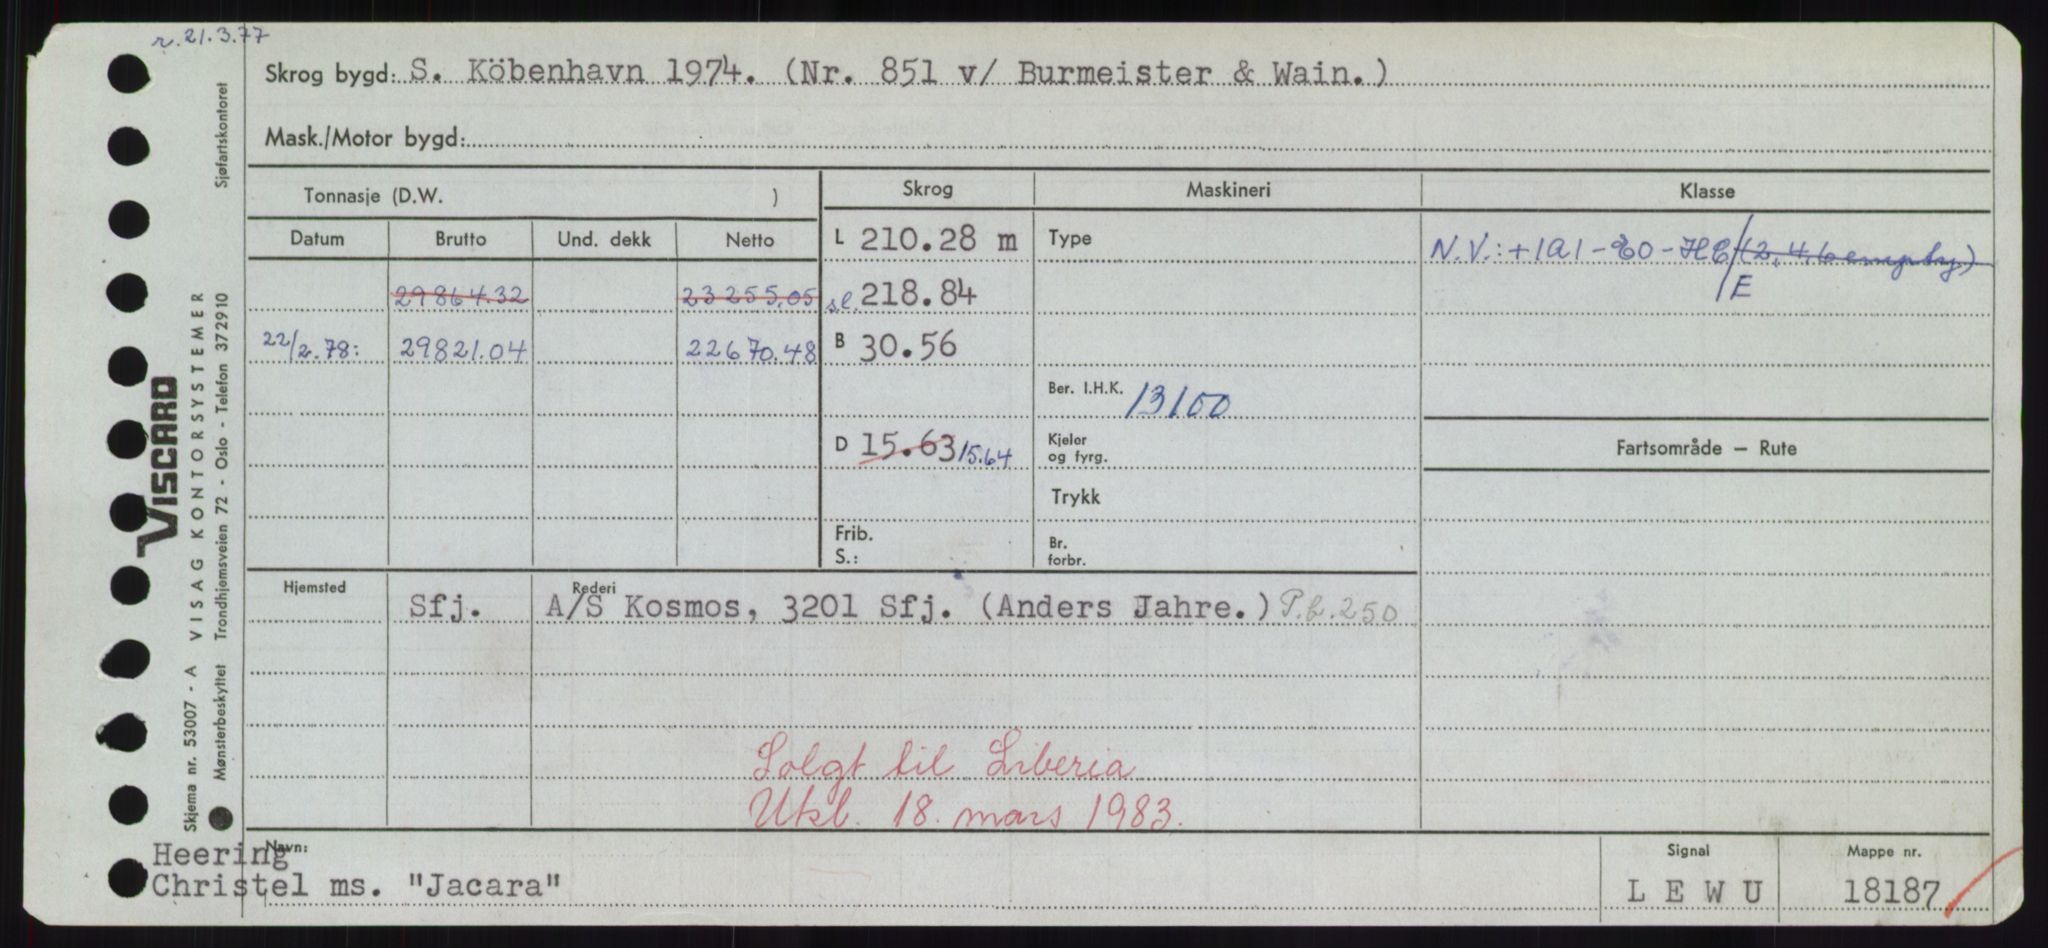 r. 21.3.77
Skrog bygd: S. Köbenhavn 1974. (Nr. 851 v/ Burmeister & Wain.)
Mask./Motor bygd:
Tonnasje (D.W. )
Skrog
Maskineri
Klasse
Datum Brutto Und. dekk Netto
L 210.28 m
Type
N.V.: +1A1 - EO - HC/(2,4,6 empty)
E
29864.32 23255.05
sl. 218.84
22/2.78: 29821.04 22670.48
B 30.56
Ber. I.H.K. 13100
D 15.63 15.64
Kjeler
og fyrg.
Fartsområde – Rute
Trykk
Frib.
S.:
Br.
forbr.
Hjemsted
Rederi
Sfj. A/S Kosmos, 3201 Sfj. (Anders Jahre.) P.b. 250
Solgt til Liberia
Utkl. 18. mars 1983.
Navn:
Heering
Christel ms. "Jacara"
Signal
LEWU
Mappe nr.
18187
VISCARD
Skjema nr. 53007 - A VISAG KONTORSYSTEMER
Mønsterbeskyttet Trondhjemsveien 72 - Oslo - Telefon 372910 Sjøfartskontoret